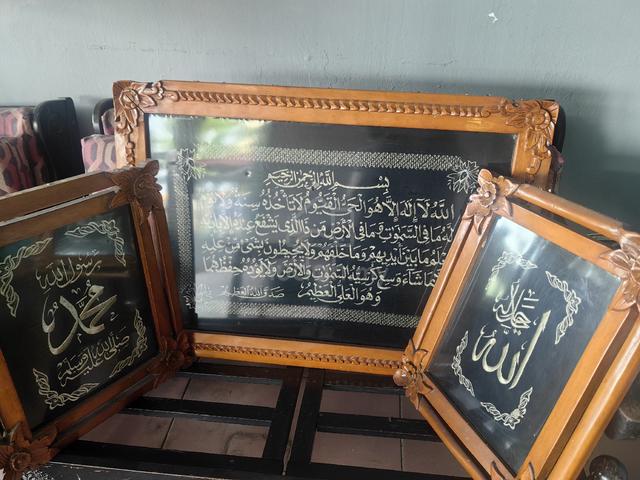 رسول الله
محمد
صلى الله عليه وسلم
بسم الله الرحمن الرحيم
الله لا إله إلا هو الحي القيوم لا تأخذه سنة ولا نوم
له ما في السموات وما في الأرض من ذا الذي يشفع عنده إلا بإذنه
يعلم ما بين أيديهم وما خلفهم ولا يحيطون بشيء من علمه
إلا بما شاء وسع كرسيه السموات والأرض ولا يؤده حفظهما
وهو العلي العظيم صدق الله العظيم
جل جلاله
الله